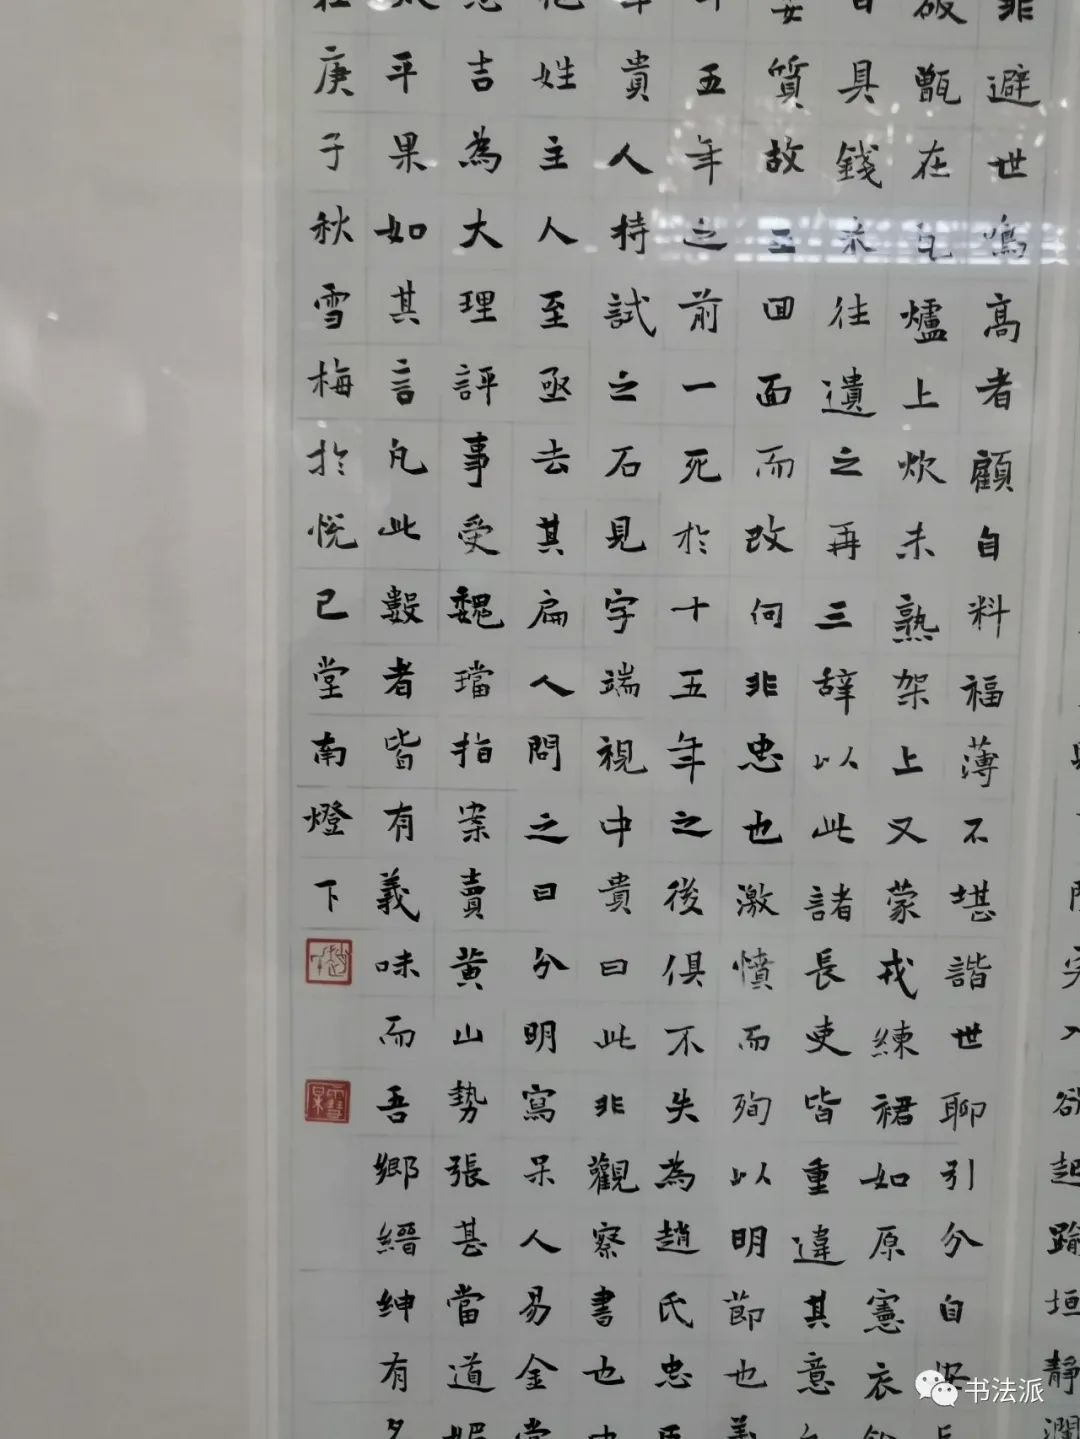 避世鳴高者顧自料福薄不堪諧世聊引分自安
破甑在瓦爐上炊未熟架上又蒙戎練裙如原憲衣
具錢米往遺之再三辞以此諸長吏皆重違其意
質故五回面而改何非忠也激憤而殉以明節也
五年之前一死於十五年之後俱不失為趙氏忠臣
貴人持試之石見字端視中貴曰此非觀察書也
姓主人至亟去其扁人問之曰分明寫呆人易金
吉為大理評事受魏璫指案賣黄山勢張甚當道
平果如其言凡此數者皆有義味而吾鄉縉紳有
庚子秋雪梅於悦己堂南燈下
入欲起踰垣靜
书法派